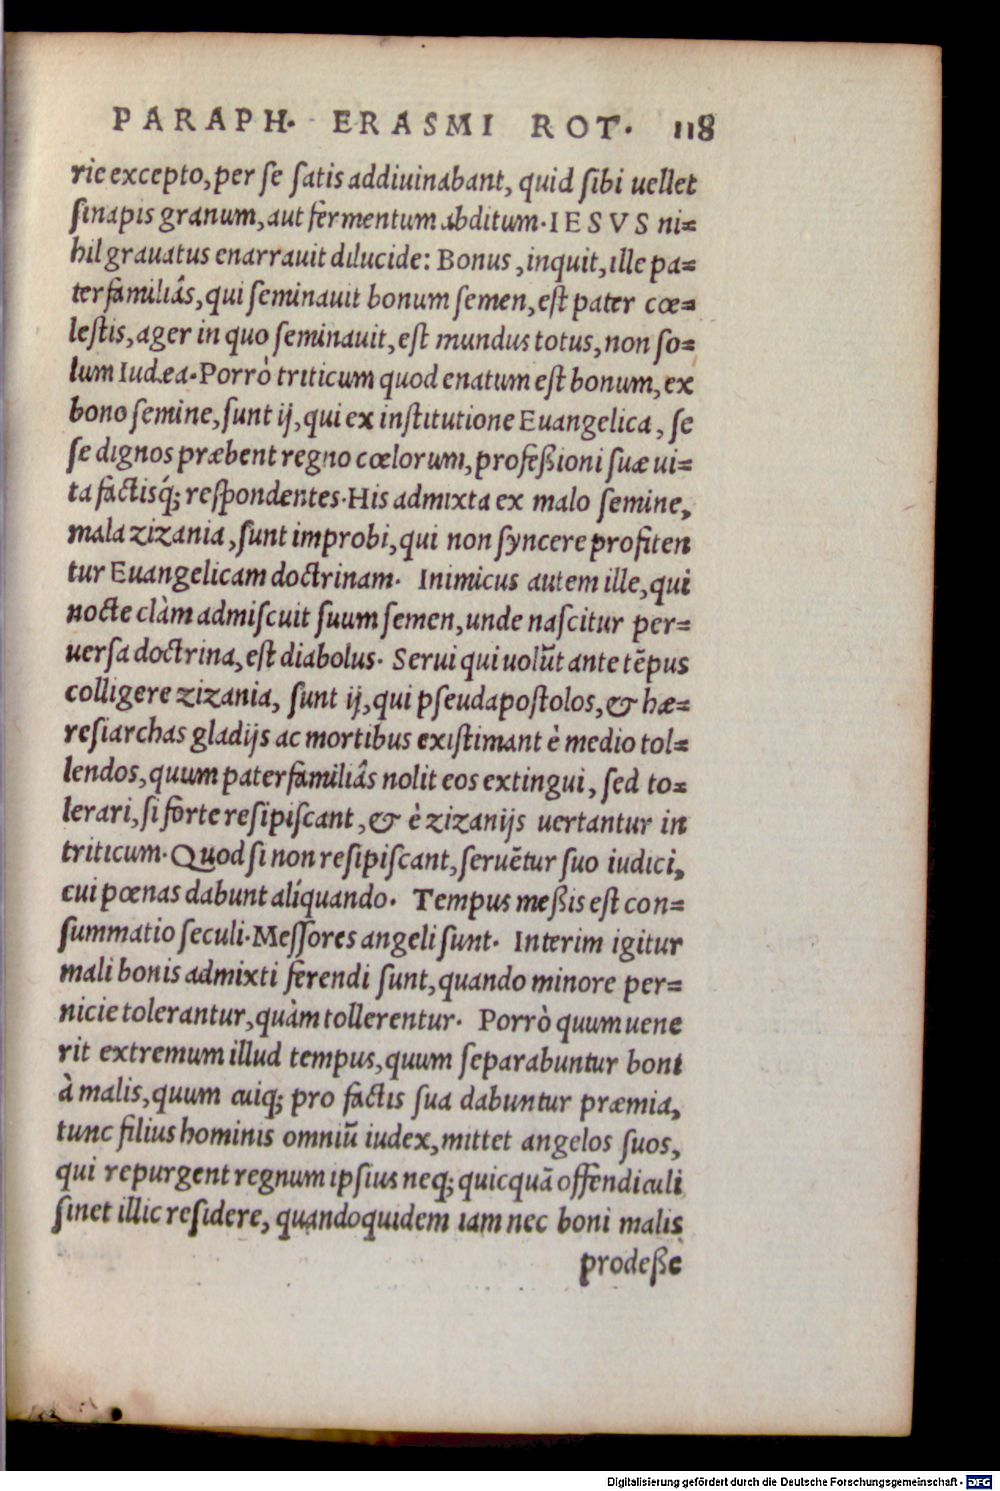 PARAPH. ERASMI ROT. 118
rie excepto, per se satis addiuinabant, quid sibi uellet
sinapis granum, aut fermentum abditum. IESVS ni=
hil grauatus enarrauit dilucide: Bonus, inquit, ille pa=
terfamiliâs, qui seminauit bonum semen, est pater cœ=
lestis, ager in quo seminauit, est mundus totus, non so=
lum Iudæa. Porrò triticum quod enatum est bonum, ex
bono semine, sunt ij, qui ex institutione Euangelica, se
se dignos præbent regno cœlorum, profeßioni suæ ui=
ta factisq́; respondentes. His admixta ex malo semine,
mala zizania, sunt improbi, qui non syncere profiten
tur Euangelicam doctrinam. Inimicus autem ille, qui
nocte clàm admiscuit suum semen, unde nascitur per=
uersa doctrina, est diabolus. Serui qui uolũt ante tẽpus
colligere zizania, sunt ij, qui pseudapostolos, & hæ=
resiarchas gladijs ac mortibus existimant è medio tol=
lendos, quum paterfamiliâs nolit eos extingui, sed to=
lerari, si forte resipiscant, & è zizanijs uertantur in
triticum. Quod si non resipiscant, seruẽtur suo iudici,
cui pœnas dabunt alíquando. Tempus meßis est con=
summatio seculi. Messores angeli sunt. Interim igitur
mali bonis admixti ferendi sunt, quando minore per=
nicie tolerantur, quàm tollerentur. Porrò quum uene
rit extremum illud tempus, quum separabuntur boni
à malis, quum cuiq; pro factis sua dabuntur præmia,
tunc filius hominis omniũ iudex, mittet angelos suos,
qui repurgent regnum ipsius neq; quicquã offendiculi
sinet illic residere, quandoquidem iam nec boni malis
prodeße
Digitalisierung gefördert durch die Deutsche Forschungsgemeinschaft - DFG